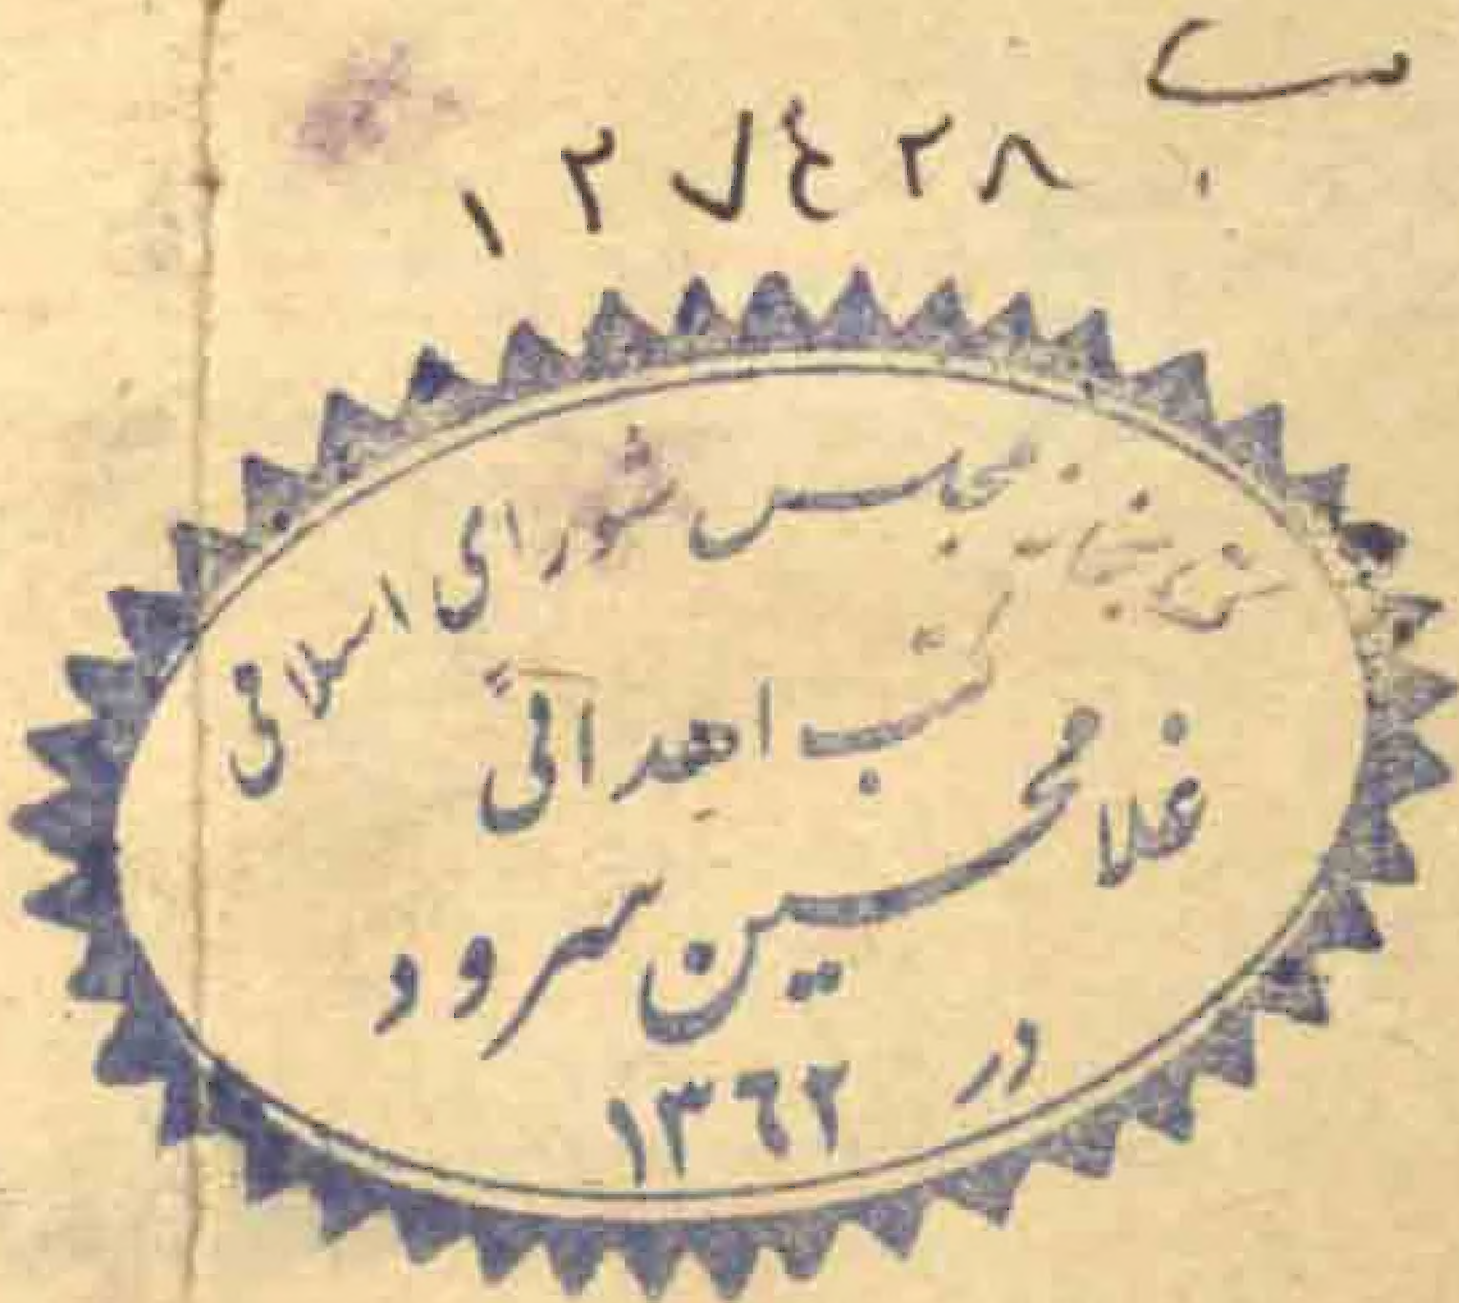 کتابخانه مجلس شورای اسلامی
کتب اهدائی
غلامحسین سرود
در
۱۳۶۲